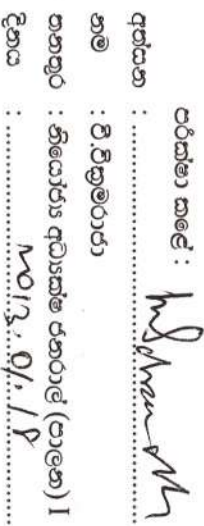 පරීක්ෂා කළේ :
අත්සන :
නම : වී.වික්‍රමරාජා
තනතුර : නියෝජ්‍ය අධ්‍යක්ෂ ජනරාල් (පාලන) I
දිනය : 2013.01.18